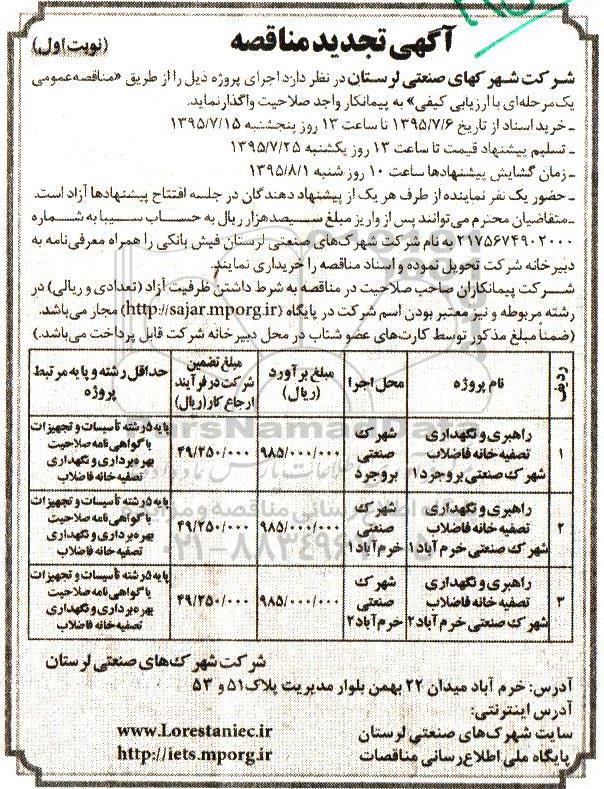 آگهی تجدید مناقصه
(نوبت اول)
شرکت شهرکهای صنعتی لرستان در نظر دارد اجرای پروژه ذیل را از طریق «مناقصه عمومی
یک مرحله‌ای با ارزیابی کیفی» به پیمانکار واجد صلاحیت واگذار نماید.
- خرید اسناد از تاریخ ۱۳۹۵/۷/۶ تا ساعت ۱۳ روز پنجشنبه ۱۳۹۵/۷/۱۵
- تسلیم پیشنهاد قیمت تا ساعت ۱۳ روز یکشنبه ۱۳۹۵/۷/۲۵
- زمان گشایش پیشنهادها ساعت ۱۰ روز شنبه ۱۳۹۵/۸/۱
- حضور یک نفر نماینده از طرف هر یک از پیشنهاد دهندگان در جلسه افتتاح پیشنهادها آزاد است.
- متقاضیان محترم می‌توانند پس از واریز مبلغ سیصد هزار ریال به حساب سیبا به شماره
۲۱۷۵۶۷۴۹۰۲۰۰۰ به نام شرکت شهرک‌های صنعتی لرستان فیش بانکی را همراه معرفی‌نامه به
دبیرخانه شرکت تحویل نموده و اسناد مناقصه را خریداری نمایند.
شرکت پیمانکاران صاحب صلاحیت در مناقصه به شرط داشتن ظرفیت آزاد (تعدادی و ریالی) در
رشته مربوطه و نیز معتبر بودن اسم شرکت در پایگاه (http://sajar.mporg.ir) مجاز می‌باشد.
(ضمناً مبلغ مذکور توسط کارت‌های عضو شتاب در محل دبیرخانه شرکت قابل پرداخت می‌باشد.)
ردیف | نام پروژه | محل اجرا | مبلغ برآورد (ریال) | مبلغ تضمین شرکت در فرآیند ارجاع کار (ریال) | حداقل رشته و پایه مرتبط پروژه
۱ | راهبری و نگهداری تصفیه خانه فاضلاب شهرک صنعتی بروجرد ۱ | شهرک صنعتی بروجرد | ۹۸۵/۰۰۰/۰۰۰ | ۴۹/۲۵۰/۰۰۰ | پایه ۵ رشته تأسیسات و تجهیزات یا گواهی نامه صلاحیت بهره‌برداری و نگهداری تصفیه خانه فاضلاب
۲ | راهبری و نگهداری تصفیه خانه فاضلاب شهرک صنعتی خرم آباد ۱ | شهرک صنعتی خرم‌آباد ۱ | ۹۸۵/۰۰۰/۰۰۰ | ۴۹/۲۵۰/۰۰۰ | پایه ۵ رشته تأسیسات و تجهیزات یا گواهی نامه صلاحیت بهره‌برداری و نگهداری تصفیه خانه فاضلاب
۳ | راهبری و نگهداری تصفیه خانه فاضلاب شهرک صنعتی خرم آباد ۲ | شهرک صنعتی خرم‌آباد ۲ | ۹۸۵/۰۰۰/۰۰۰ | ۴۹/۲۵۰/۰۰۰ | پایه ۵ رشته تأسیسات و تجهیزات یا گواهی نامه صلاحیت بهره‌برداری و نگهداری تصفیه خانه فاضلاب
ParsNamadData
شرکت شهرک‌های صنعتی لرستان
آدرس: خرم آباد میدان ۲۲ بهمن بلوار مدیریت پلاک ۵۱ و ۵۳
آدرس اینترنتی:
سایت شهرک‌های صنعتی لرستان www.Lorestaniec.ir
پایگاه ملی اطلاع‌رسانی مناقصات http://iets.mporg.ir